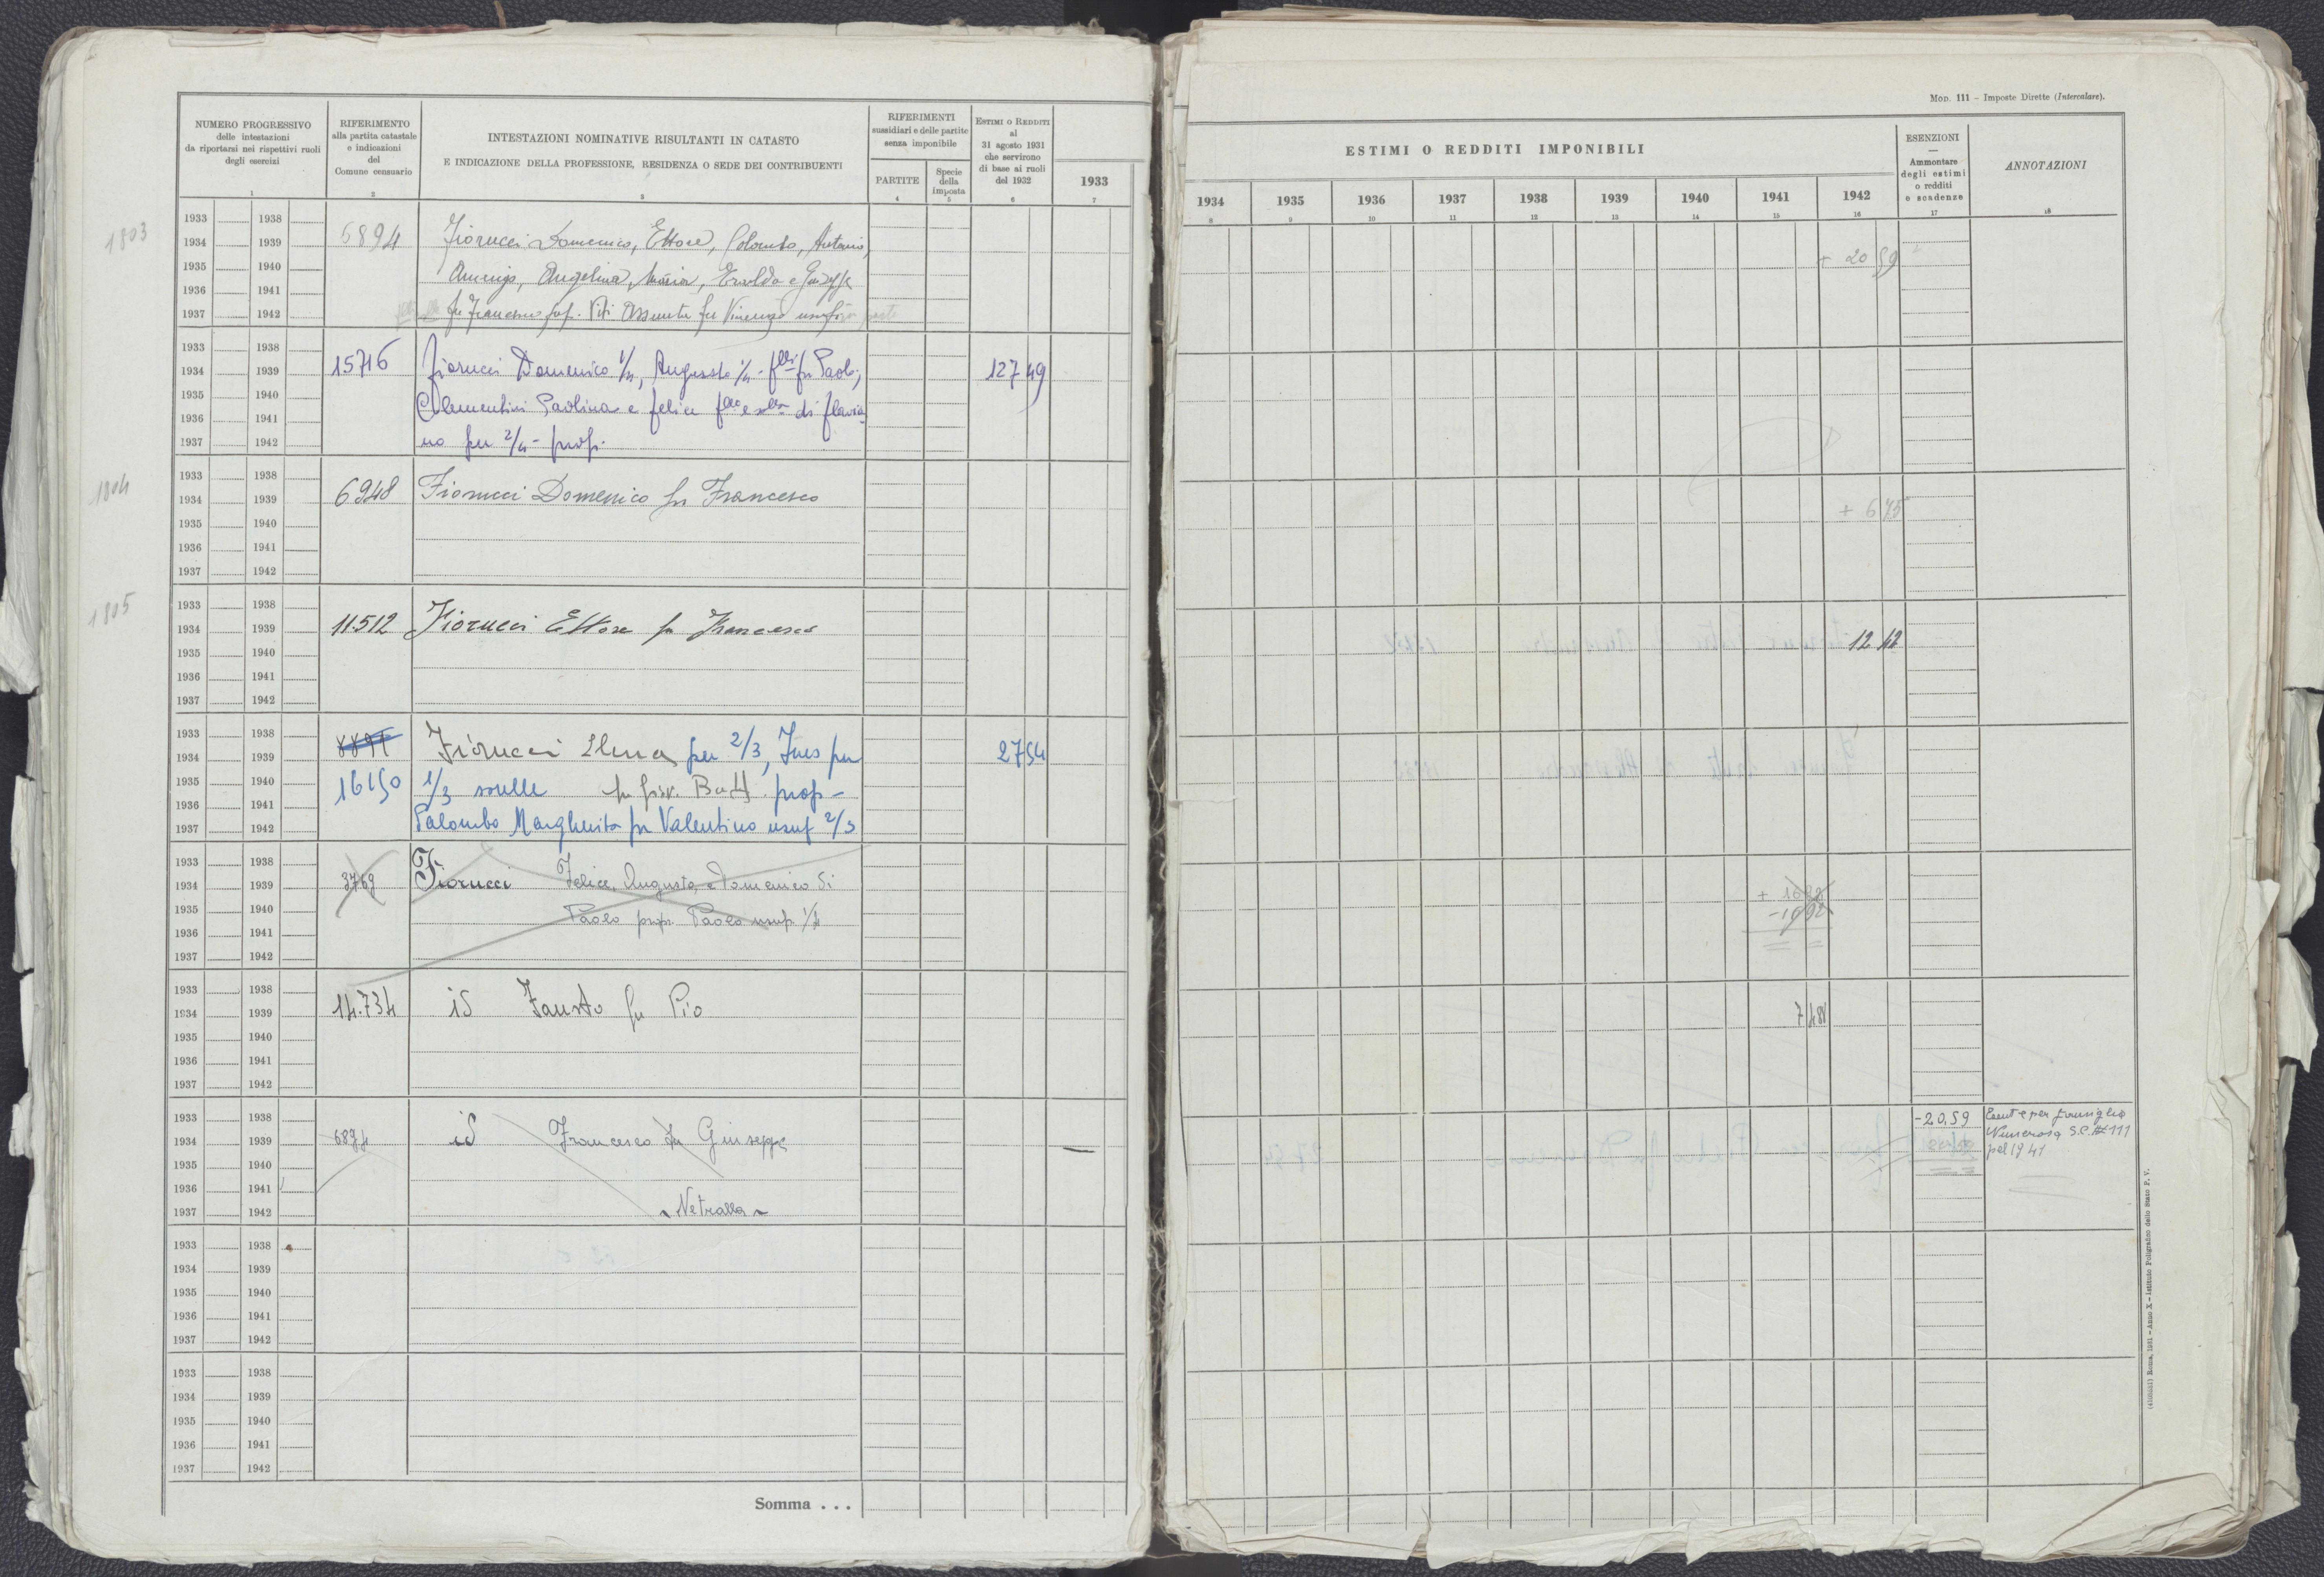 Mod. 111 – Imposte Dirette (Intercalare).
NUMERO PROGRESSIVO
delle intestazioni
da riportarsi nei rispettivi ruoli
degli esercizi
1
RIFERIMENTO
alla partita catastale
e indicazioni
del
Comune censuario
2
INTESTAZIONI NOMINATIVE RISULTANTI IN CATASTO
E INDICAZIONE DELLA PROFESSIONE, RESIDENZA O SEDE DEI CONTRIBUENTI
3
RIFERIMENTI
sussidiari e delle partite
senza imponibile
PARTITE
4
Specie
della
imposta
5
ESTIMI O REDDITI
al
31 agosto 1931
che servirono
di base ai ruoli
del 1932
6
1933
7
ESTIMI O REDDITI IMPONIBILI
1934 1935 1936 1937 1938 1939 1940 1941 1942
8 9 10 11 12 13 14 15 16
ESENZIONI
—
Ammontare
degli estimi
o redditi
e scadenze
17
ANNOTAZIONI
18
1803
1933 1938
1934 1939
1935 1940
1936 1941
1937 1942
6894
Fiorucci Domenico, Ettore, Colombo, Antonio,
Amerigo, Angelina, Maria, Ersilda e Giuseppe
fu Francesco prop. Viti Assunta fu Vincenzo usuf. in parte
+ 20 59
1933 1938
1934 1939
1935 1940
1936 1941
1937 1942
15716
Fiorucci Domenico 1/4, Augusto 1/4 - flli fu Paolo,
Clementini Paolina e Felice fllo e slla di Flavia-
no per 2/4 - prop.
127 49
1804
1933 1938
1934 1939
1935 1940
1936 1941
1937 1942
6948
Fiorucci Domenico fu Francesco
+ 6 75
1805
1933 1938
1934 1939
1935 1940
1936 1941
1937 1942
11.512
Fiorucci Ettore fu Francesco
12 42
1933 1938
1934 1939
1935 1940
1936 1941
1937 1942
16150
Fiorucci Elena per 2/3, Ines per
1/3 sorelle fu Giov. Batt. prop -
Palombo Margherita fu Valentino usuf 2/3
27 54
1933 1938
1934 1939
1935 1940
1936 1941
1937 1942
3769
Fiorucci Felice, Augusto, e Domenico di
Paolo prop. Paolo usuf. 1/4
+ 16 92
- 16 92
1933 1938
1934 1939
1935 1940
1936 1941
1937 1942
14.734
id Fausto fu Pio
7 48
1933 1938
1934 1939
1935 1940
1936 1941
1937 1942
6894
id Francesco fu Giuseppe
Vetralla
- 20,59
Esente per famiglia
Numerosa S.C. 111
pel 1941
1933 1938
1934 1939
1935 1940
1936 1941
1937 1942
1933 1938
1934 1939
1935 1940
1936 1941
1937 1942
Somma . . .
Roma, 1931 – Anno X – Istituto Poligrafico dello Stato P. V.